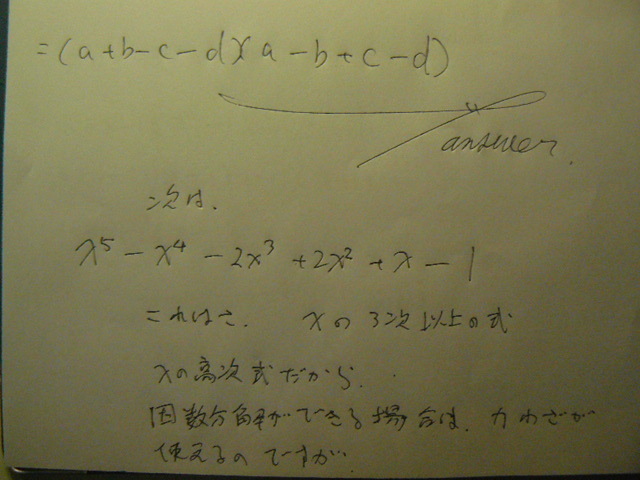 =(a+b-c-d)(a-b+c-d)
answer.
次は、
x⁵-x⁴-2x³+2x²+x-1
これはさ、 xの3次以上の式
xの高次式だから、
因数分解ができる場合は、力わざが
使えるのですが